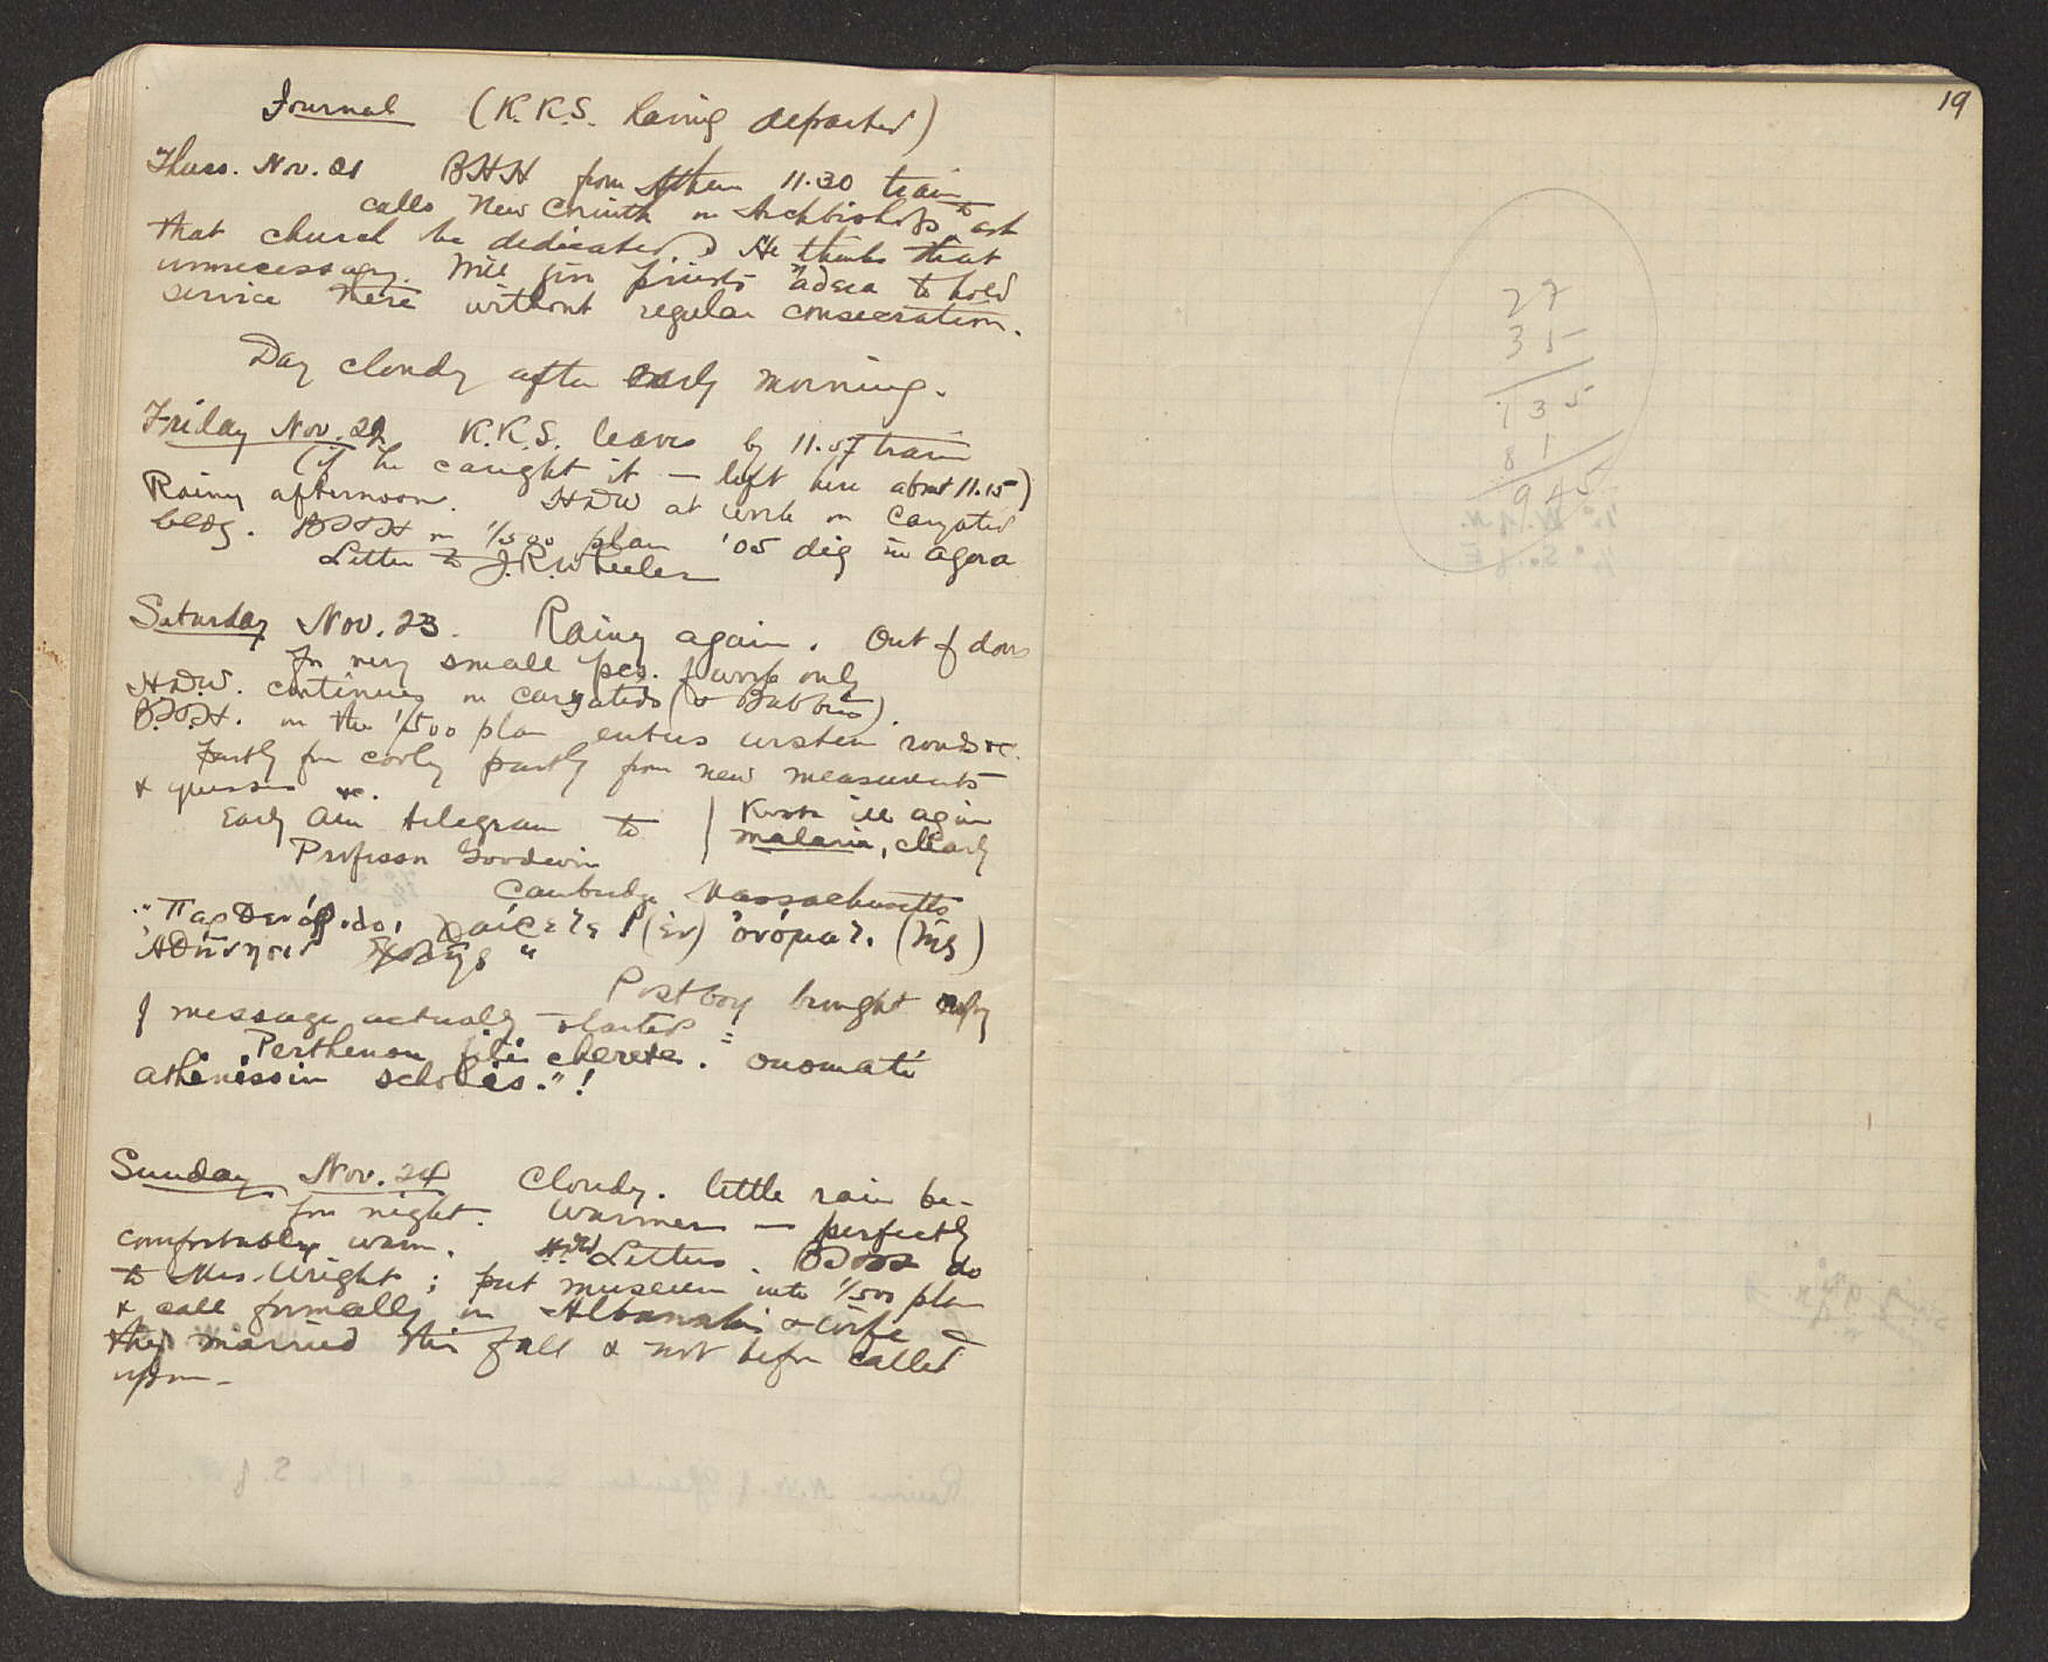 Journal (K.K.S. having departed)
Thurs. Nov. 21 BHH from Athens 11.30 train
calls New Corinth on Archbishop to ask
that church be dedicated. He thinks that
unnecessary. Will give priests "adeia to hold
service there without regular consecration.
Day cloudy after early morning.
Friday Nov. 22 K.K.S. leaves by 11.57 train
(if he caught it — left here about 11.15)
Rainy afternoon. HDW at work on Caryatid
bldg. BHH on 1/500 plan '05 dig in agora
Letter to J.R. Wheeler
Saturday Nov. 23. Rainy again. Out of doors
for very small pcs. of work only
HDW. continues on caryatids (& Babbius).
BHH. on the 1/500 plan enters western roads &c.
Partly fr partly from new measurements
& guesses &c.
Early am telegram to
Professor Goodwin
Kosta ill again
malaria, clearly
Cambridge Massachusetts
"Παρθενόφιλοι χαίρετε! (ἐν) ὀνόματι (τῆς)
Ἀθήνησιν Σχολῆς"
Postboy brought copy
of message actually started =
"Perthenon fili cherete. onomati
athinissin scholis."!
Sunday Nov. 24 Cloudy. little rain be-
fore night. Warmer — perfectly
comfortably warm. HDW Letters. BHH do
to Mrs. Wright; put museum into 1/500 plan
& call formally on & wife —
they married this fall & not before called
upon —
19
27
35
135
81
945